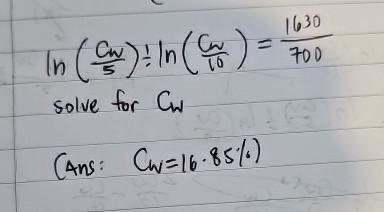 ln (Cw/5) ÷ ln (Cw/10) = 1630/700
solve for Cw
(Ans: Cw=16.85%)